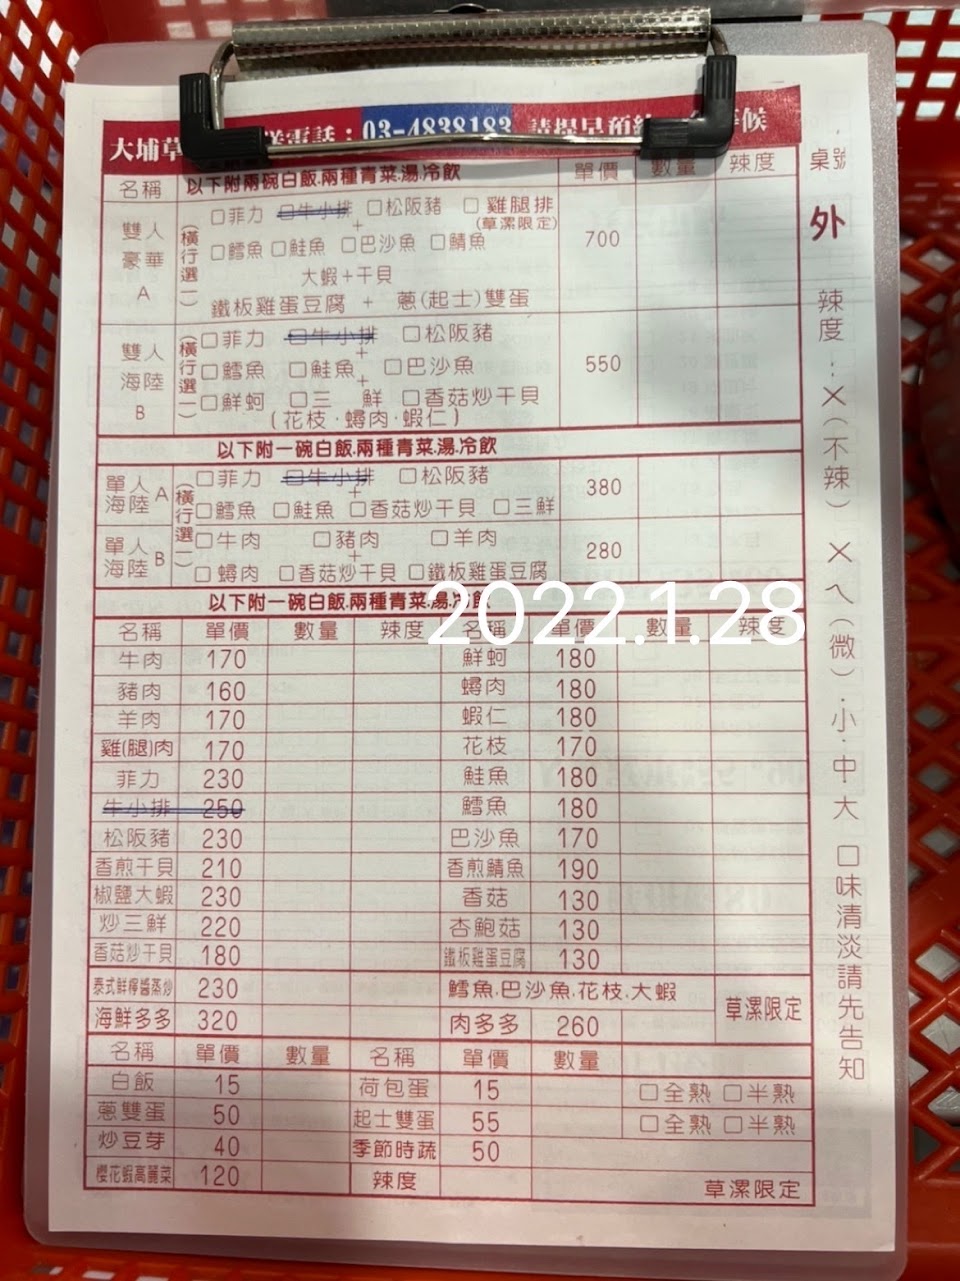 大埔草 送電話：03-4838183 請提早預約 候
桌號
外
名稱 以下附兩碗白飯.兩種青菜.湯.冷飲 單價 數量 辣度
雙人豪華A (橫行選一) □菲力 □牛小排 □松阪豬 □雞腿排
+ (草漯限定)
□鱈魚 □鮭魚 □巴沙魚 □鯖魚 700
大蝦+干貝
鐵板雞蛋豆腐 + 蔥(起士)雙蛋
雙人海陸B (橫行選一) □菲力 □牛小排 □松阪豬
+
□鱈魚 □鮭魚 □巴沙魚 550
+
□鮮蚵 □三 鮮 □香菇炒干貝
(花枝·蟳肉·蝦仁)
以下附一碗白飯.兩種青菜.湯.冷飲
單人海陸A (橫行選一) □菲力 □牛小排 □松阪豬 380
+
□鱈魚 □鮭魚 □香菇炒干貝 □三鮮
單人海陸B □牛肉 □豬肉 □羊肉 280
+
□蟳肉 □香菇炒干貝 □鐵板雞蛋豆腐
以下附一碗白飯.兩種青菜.湯.冷飲
2022.1.28
名稱 單價 數量 辣度 名稱 單價 數量 辣度
牛肉 170 鮮蚵 180
豬肉 160 蟳肉 180
羊肉 170 蝦仁 180
雞(腿)肉 170 花枝 170
菲力 230 鮭魚 180
牛小排 250 鱈魚 180
松阪豬 230 巴沙魚 170
香煎干貝 210 香煎鯖魚 190
椒鹽大蝦 230 香菇 130
炒三鮮 220 杏鮑菇 130
香菇炒干貝 180 鐵板雞蛋豆腐 130
泰式鮮檸醬蒸炒 230 鱈魚.巴沙魚.花枝.大蝦 草漯限定
海鮮多多 320 肉多多 260
名稱 單價 數量 名稱 單價 數量
白飯 15 荷包蛋 15 □全熟 □半熟
蔥雙蛋 50 起士雙蛋 55 □全熟 □半熟
炒豆芽 40 季節時蔬 50
櫻花蝦高麗菜 120 辣度 草漯限定
辣度：×(不辣) ×ヘ(微)·小·中·大 口味清淡請先告知